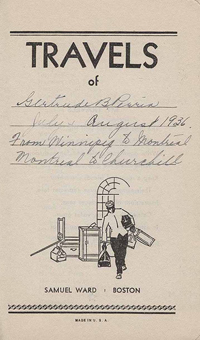 TRAVELS
of
Gertrude B
August 1936
From Winnipeg to Montreal
Montreal to Churchill
SAMUEL WARD · BOSTON
MADE IN U. S. A.